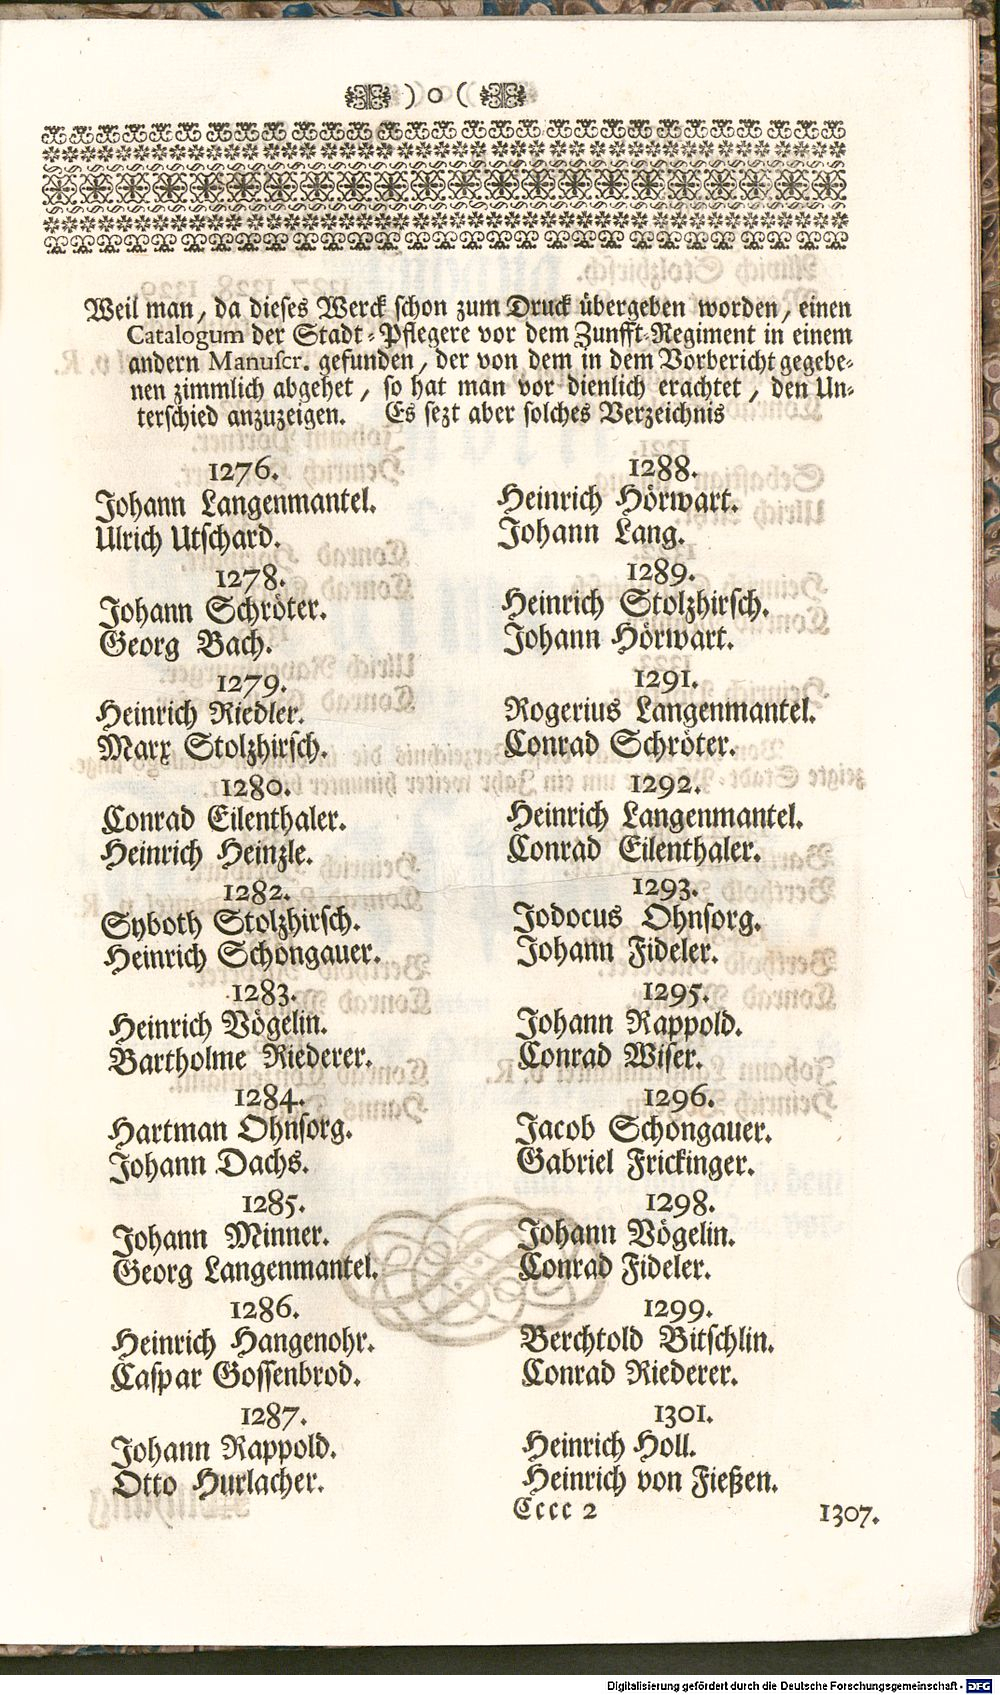 ) o (
Weil man, da dieses Werck schon zum Druck übergeben worden, einen
Catalogum der Stadt-Pflegere vor dem Zunfft-Regiment in einem
andern Manuscr. gefunden, der von dem in dem Vorbericht gegebe-
nen zimmlich abgehet, so hat man vor dienlich erachtet, den Un-
terschied anzuzeigen. Es sezt aber solches Verzeichnis
1276.
Johann Langenmantel.
Ulrich Utschard.
1278.
Johann Schröter.
Georg Bach.
1279.
Heinrich Riedler.
Marx Stolzhirsch.
1280.
Conrad Eilenthaler.
Heinrich Heinzle.
1282.
Syboth Stolzhirsch.
Heinrich Schongauer.
1283.
Heinrich Vögelin.
Bartholme Riederer.
1284.
Hartman Ohnsorg.
Johann Dachs.
1285.
Johann Minner.
Georg Langenmantel.
1286.
Heinrich Hangenohr.
Caspar Gossenbrod.
1287.
Johann Rappold.
Otto Hurlacher.
1288.
Heinrich Hörwart.
Johann Lang.
1289.
Heinrich Stolzhirsch.
Johann Hörwart.
1291.
Rogerius Langenmantel.
Conrad Schröter.
1292.
Heinrich Langenmantel.
Conrad Eilenthaler.
1293.
Jodocus Ohnsorg.
Johann Fideler.
1295.
Johann Rappold.
Conrad Wiser.
1296.
Jacob Schongauer.
Gabriel Frickinger.
1298.
Johann Vögelin.
Conrad Fideler.
1299.
Berchtold Bitschlin.
Conrad Riederer.
1301.
Heinrich Holl.
Heinrich von Fießen.
Cccc 2
1307.
Digitalisierung gefördert durch die Deutsche Forschungsgemeinschaft - DFG